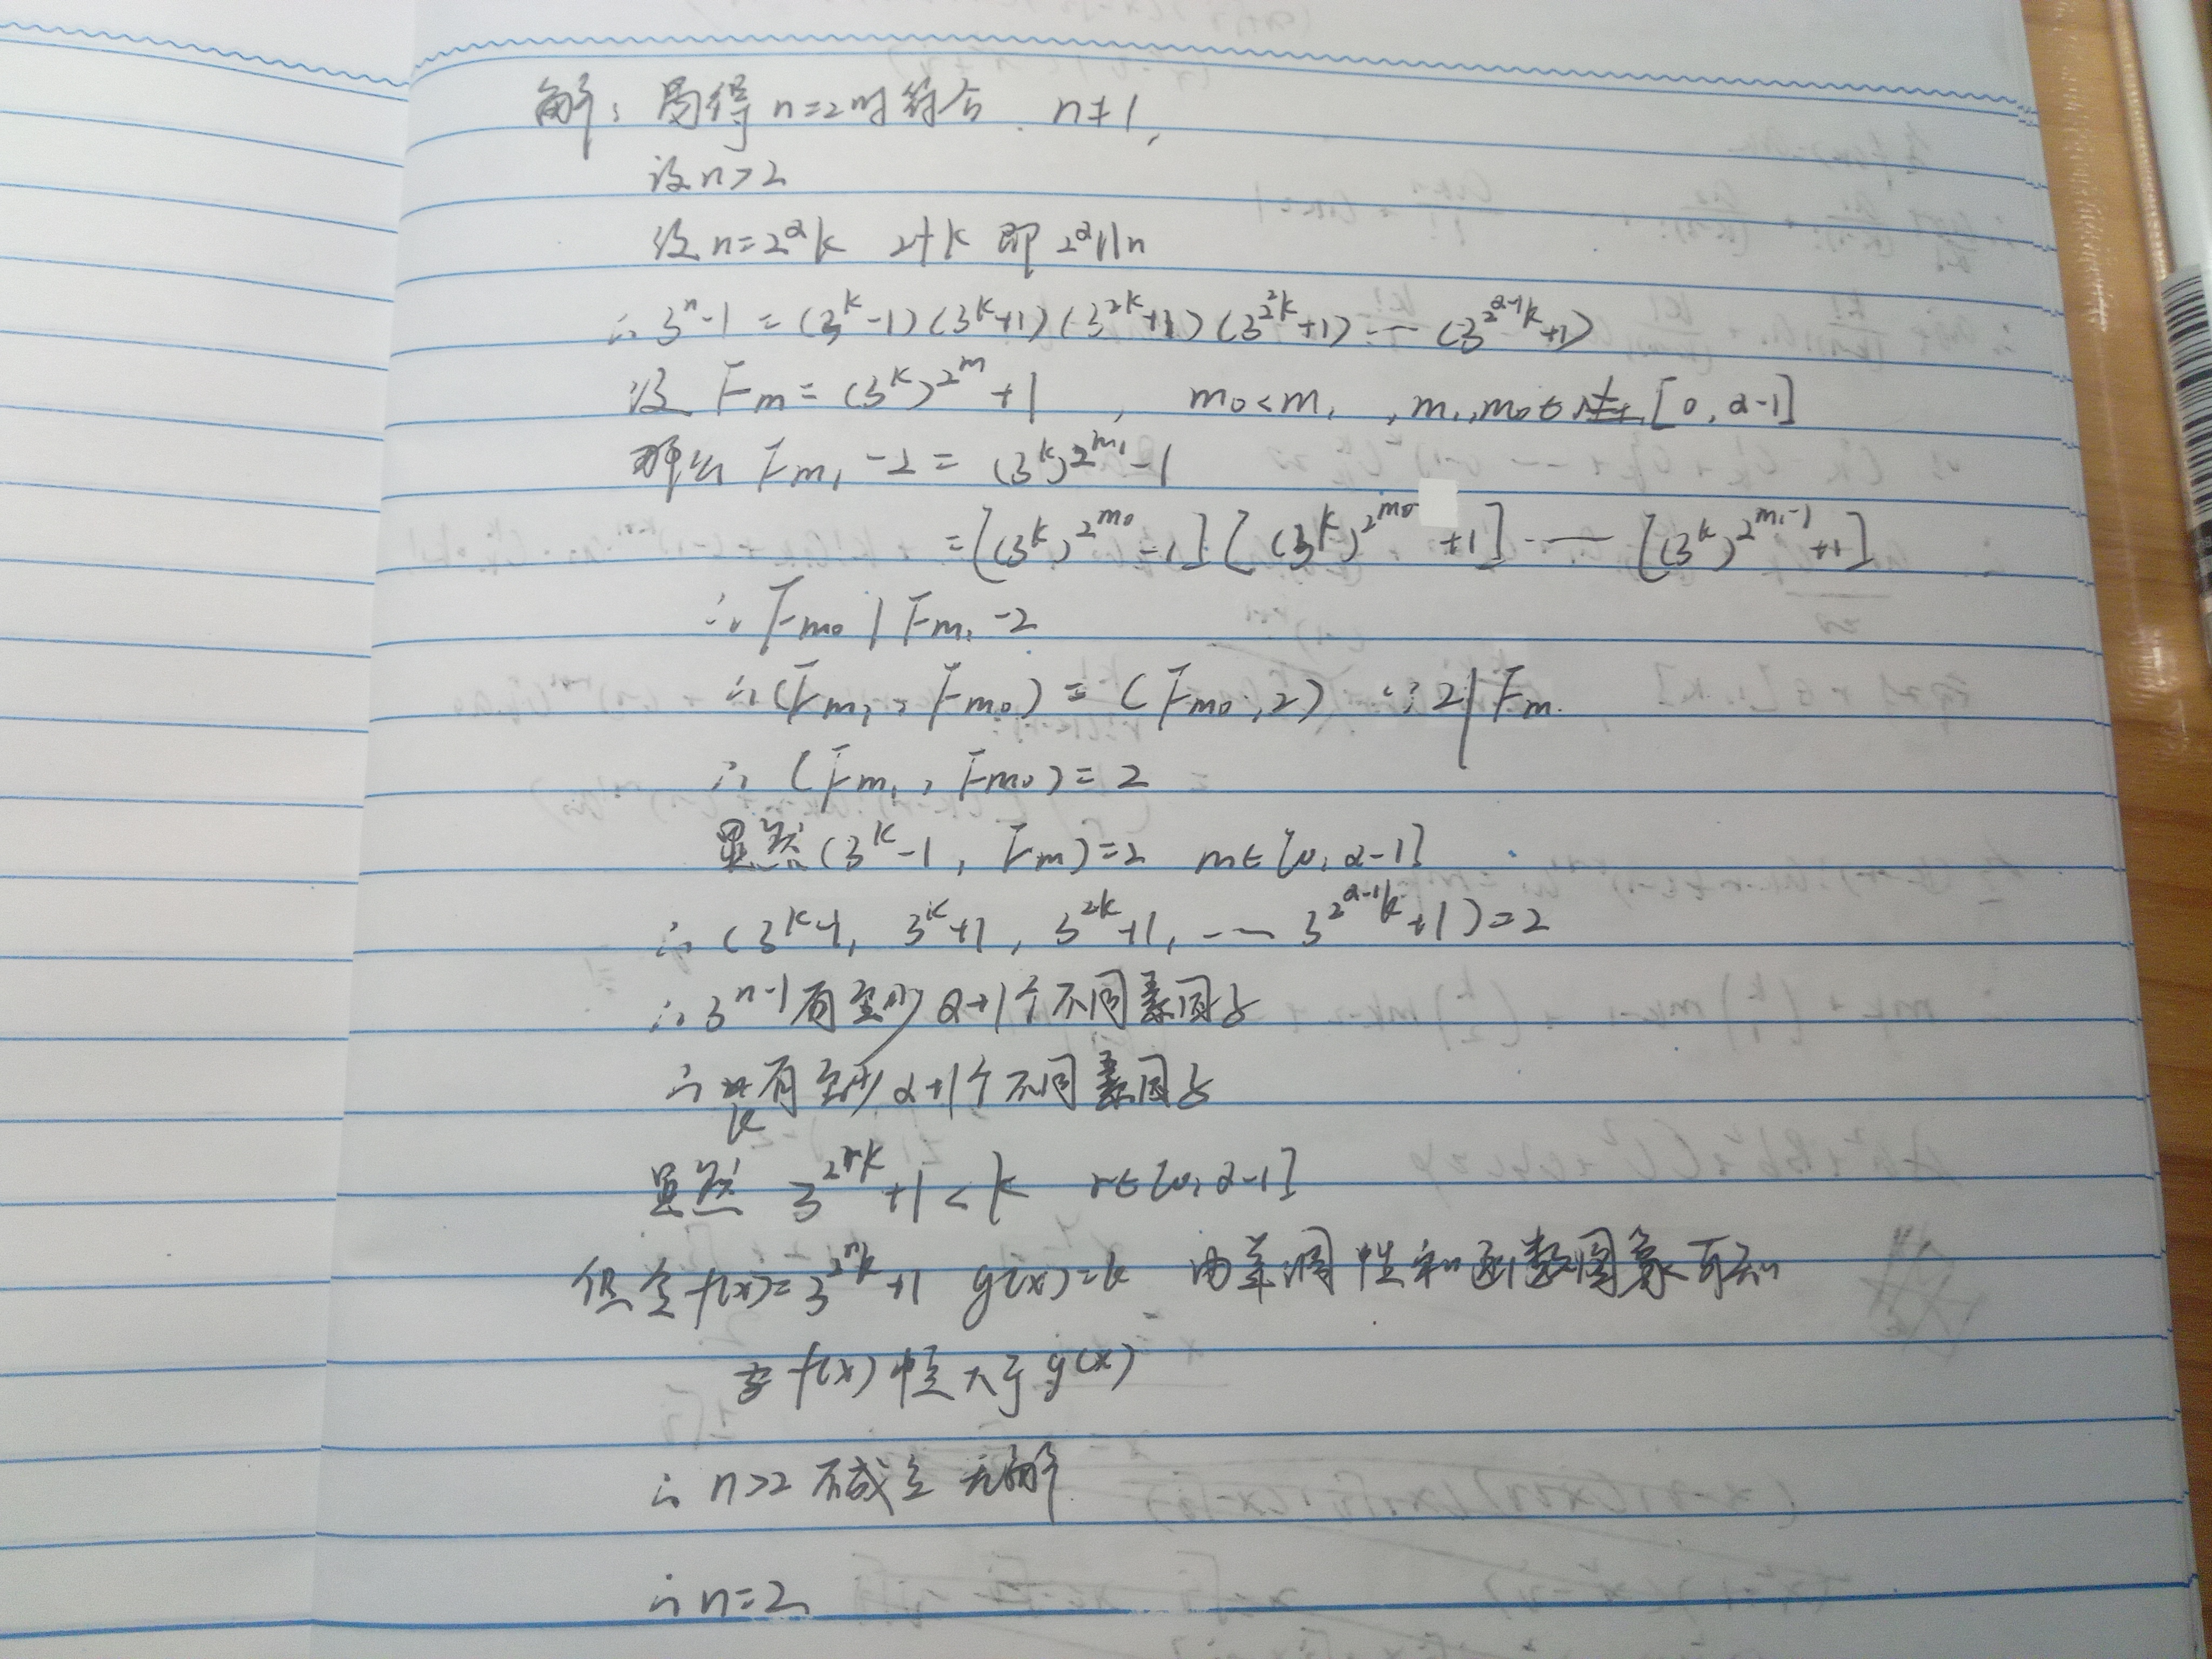 解: 易得 n=2时符合. n≠1,
设n>2
设 n=2^α k 2∤k 即 2^α||n
∴ 3^n-1 = (3^k-1)(3^k+1)(3^{2k}+1)(3^{2^2k}+1)……(3^{2^{α-1}k}+1)
设 F_m = (3^k)^{2^m}+1 , m_0<m_1 , m_1,m_0∈ [0, α-1]
那么 F_{m_1}-2 = (3^k)^{2^{m_1}}-1
=[(3^k)^{2^{m_0}}-1][(3^k)^{2^{m_0}}+1]……[(3^k)^{2^{m_1-1}}+1]
∴ F_{m_0} | F_{m_1}-2
∴ (F_{m_1}, F_{m_0}) = (F_{m_0}, 2) ∵ 2|F_m.
∴ (F_{m_1}, F_{m_0}) = 2
显然(3^k-1, F_m)=2 m∈[0, α-1]
∴ (3^k-1, 3^k+1, 3^{2k}+1, …… 3^{2^{α-1}k}+1)=2
∴ 3^n-1有至少α+1个不同素因子
∴ k有至少α+1个不同素因子
显然 3^{2^r k}+1<k r∈[0, α-1]
但令f(x)=3^{2^r k}+1 g(x)=k 由单调性和函数图象可知
f(x)恒大于g(x)
∴ n>2 不成立 无解.
∴ n=2